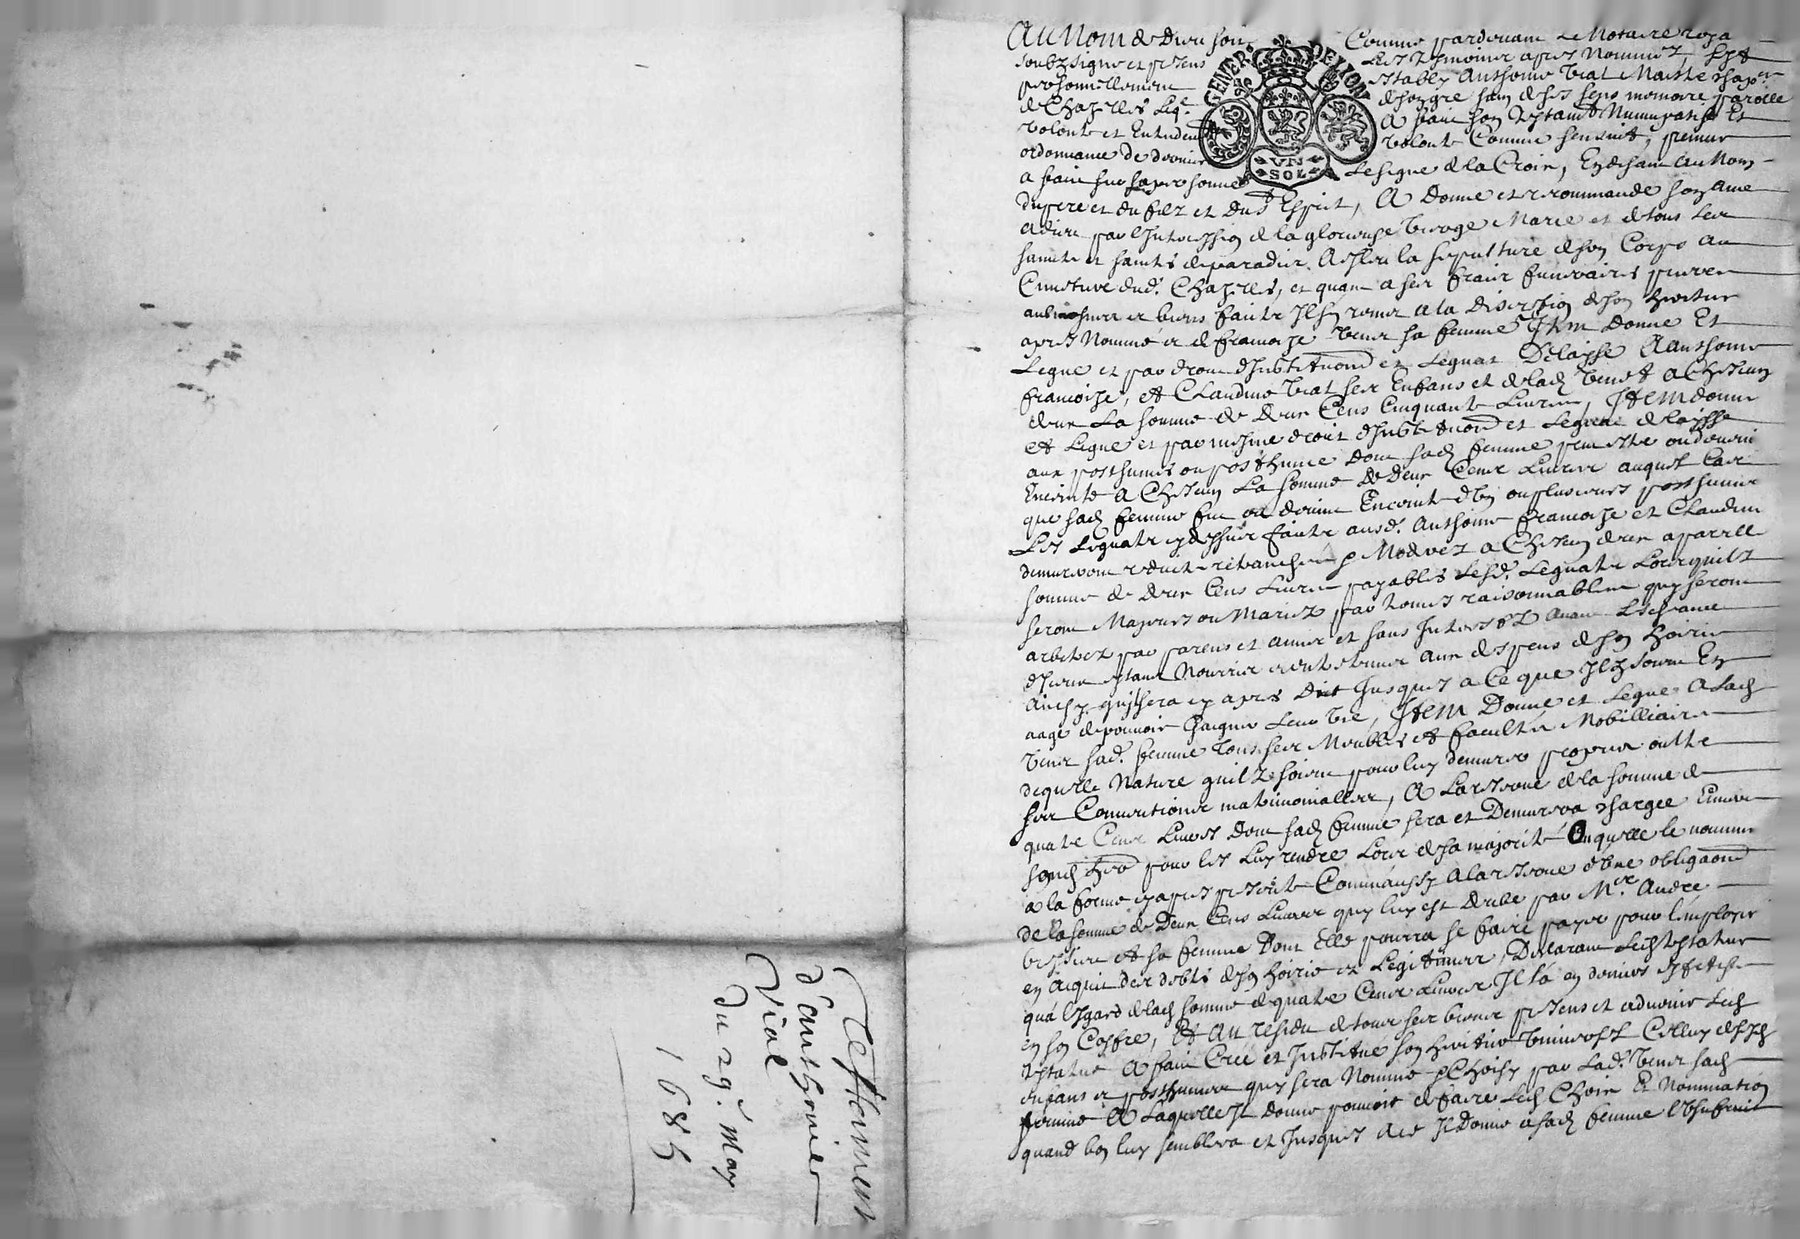 Au Nom de Dieu soit Comme pardevant le Notaire roya
soubzsigné et presens Les tesmoins apres Nommez, fust
personnellement estably Anthoine Vial Maistre
de Chazelles Leql de son gré sain de ses sens memoire parolle
volonté et Entendemt A faict son testamt Nuncupatif Et
ordonnance de derniere volonté Comme sensuit, premier
a faict sur sa personne Le signe de la Croix, En disant au Nom
du pere et du filz et du St Esprit, A donné et recommandé son ame
a dieu par l'Intercession de la glorieuse Vierge Marie et de tous les
saincts et sainctes de paradis. A esleu la sepulture de son Corps au
Cimetiere dud. Chazelles, et quant a ses fraix funeraires
aulmosnes et biens faicts Il s'en remet a la discretion de son heritier
apres Nommé et de francoise sa femme Item Donne Et
Legue et par droit d'Institution et Legat Delaisse A Anthoine
francoise, et Claudine Vial ses Enfans et de lad. A Chascun
d'eux La somme de deux Cens Cinquante Livres, Item donne
et Legue et par mesme droit d'Institution et Legat delaisse
aux posthumes ou posthume dont sad. femme peut estre ou
Enceinte A Chascun La somme de Deux Cens Livres auquel Cas
que sad. femme fut ou devint Enceinte d'un ou plusieurs posthumes
Les Legats cydessus faicts ausd. Anthoine francoise et Claudine
demeureront reduicts retranchez & Moderez a Chascun d'eux a pareille
somme de deux Cens Livres payables lesd. Legats Lorsquilz
seront Majeurs ou Mariez par termes raisonnables quy seront
arbitrez par parens et amis et sans Interestz avant
estant Nourris et entretenus aux despens de son hoirie
ainsy quy sera cy apres Dict Jusques a Ce que Ilz soient En
aage de pouvoir gaigner Leur Vie, Item Donne et Legue A lad.
sad. femme Tous ses Meubles et facultes Mobilliaires
de quelle Nature quilz soient pour luy demeurer propres outre
ses Conventions matrimonialles, A La reserve de la somme de
quatre Cens Livres dont sad. femme sera et Demeurera chargée Envers
pour les Luy rendre Lors de sa majorité Enquelle le nomme
a la forme cy apres Comme aussy A la reserve d'une obligation
de la somme de Deux Cens Livres quy luy est deube par Mre André
et sa femme Dont Elle pourra se faire payer pour l'employer
en acquit des debts de son hoirie et Legitimes, Declarant Led. testateur
qu'a l'Esgard de lad. somme de quatre Cens Livres Il l'a en deniers
en son Coffre, Et Au residu de tous ses biens presens et advenir Led.
testateur A faict Creé et Institué son heritier Universel Celluy de sesd.
enfans et posthumes quy sera Nommé & Choisy par Lad. sad.
femme A Laquelle Il donne pouvoir de faire Led. Choix Et Nomination
quand bon luy semblera et Jusques A ce Il Donne a sad. femme l'Usufruit
GENER. DE LYON
UN
SOL
Testament
d'anthoine
Vial
Du 29e. May
1685